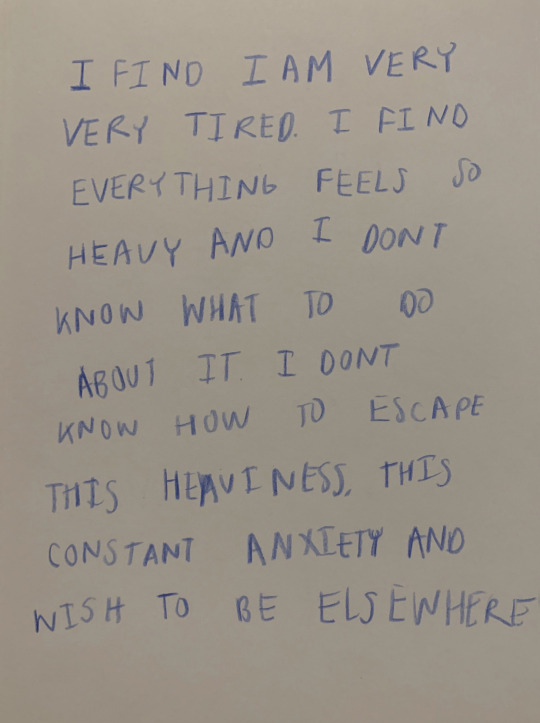 I FIND I AM VERY
VERY TIRED. I FIND
EVERYTHING FEELS SO
HEAVY AND I DONT
KNOW WHAT TO DO
ABOUT IT. I DONT
KNOW HOW TO ESCAPE
THIS HEAVINESS, THIS
CONSTANT ANXIETY AND
WISH TO BE ELSEWHERE